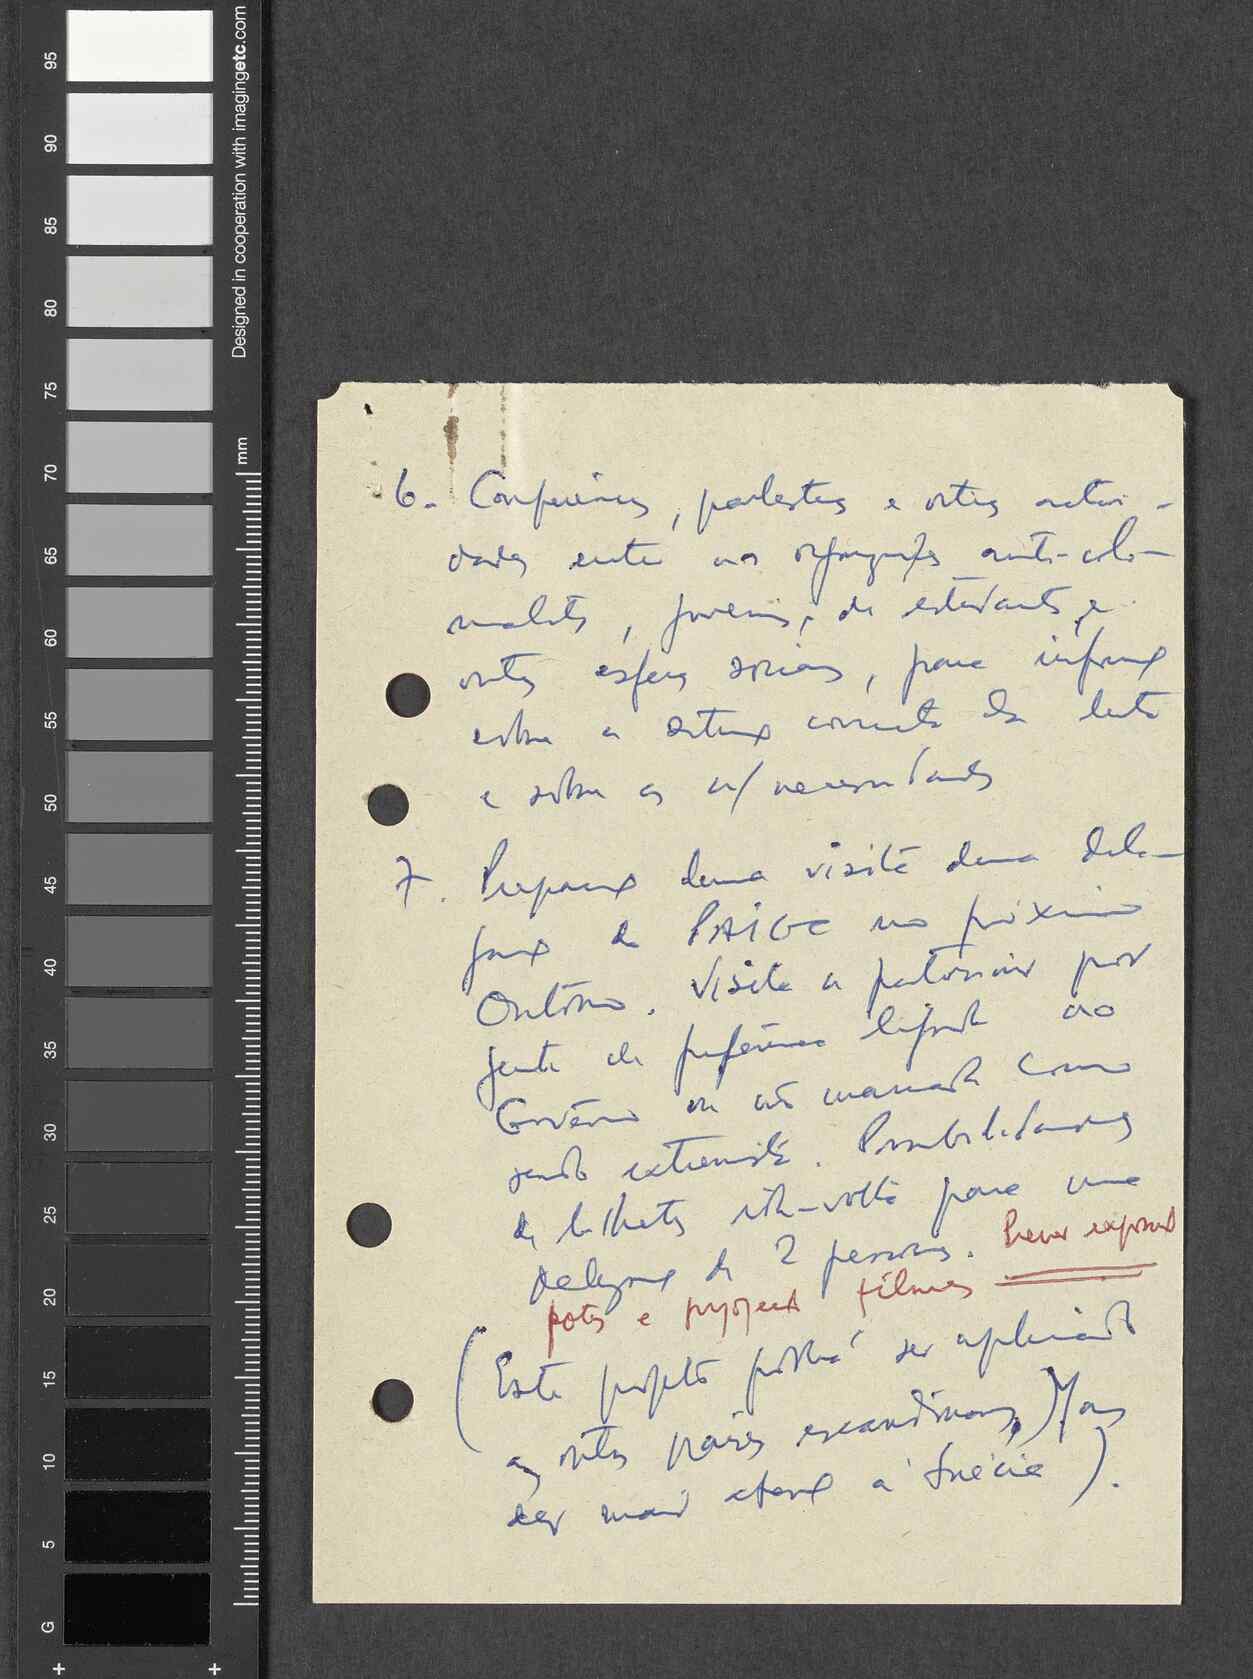 95
90
85
80
75
70
65
60
55
50
45
40
35
30
25
20
15
10
5
G
Designed in cooperation with imagingetc.com
mm
6. Conferências, palestras e outras activi-
dades entre as organizações anti-colo-
nialistas, juvenis, de estudantes, e
outras esferas sociais, para informação
sobre a situação concreta da luta
e sobre as n/ necessidades
7. Preparação duma visita duma dele-
gação do PAIGC no próximo
Outôno. Visita a patrocinar por
gente de preferência ligada ao
Govêrno ou não marcada como
sendo extremista. Possibilidades
de bilhetes ida-volta para uma
delegação de 2 pessoas. Prever exposição
fotos e projecção filmes
(Este projecto poderá ser aplicado
a outros países escandinavos,) Mas
dar mais atenção à Suécia).